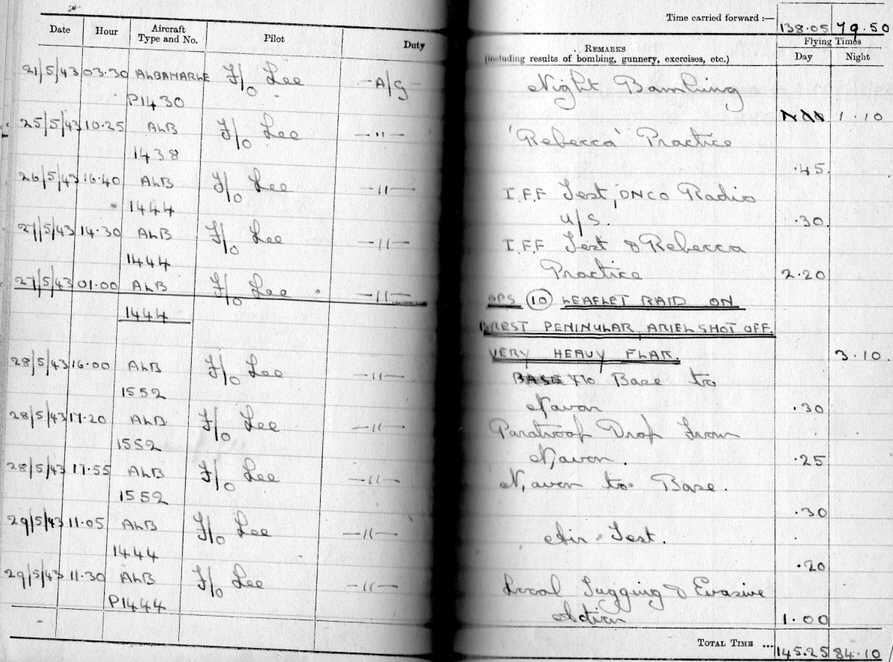 Time carried forward :— 138.05 79.50
Date Hour Aircraft Type and No. Pilot Duty REMARKS (including results of bombing, gunnery, exercises, etc.) Flying Times Day Night
21/5/43 03.30 ALBAMARLE F/O Lee —A/G Night Bombing
P1430 1.10
25/5/43 10.25 ALB F/O Lee —"— 'Rebecca' Practice
1438 .45
26/5/43 16.40 ALB F/O Lee —"— I.F.F Test, DNCO Radio
1444 U/S. .30
27/5/43 14.30 ALB F/O Lee —"— I.F.F Test & Rebecca
1444 Practice 2.20
27/5/43 01.00 ALB F/O Lee —"— OPS (10) LEAFLET RAID ON
1444 BREST PENINULAR, ARIEL SHOT OFF.
VERY HEAVY FLAK. 3.10
28/5/43 16.00 ALB F/O Lee —"— Base to
1552 N,avon .30
28/5/43 17.20 ALB F/O Lee —"— Paratroop Drop from
1552 N,avon. .25
28/5/43 17.55 ALB F/O Lee —"— N,avon to Base.
1552 .30
29/5/43 11.05 ALB F/O Lee —"— Air Test.
1444 .20
29/5/43 11.30 ALB F/O Lee —"— Local Tugging & Evasive
P1444 Action 1.00
TOTAL TIME ... 145.25 84.10